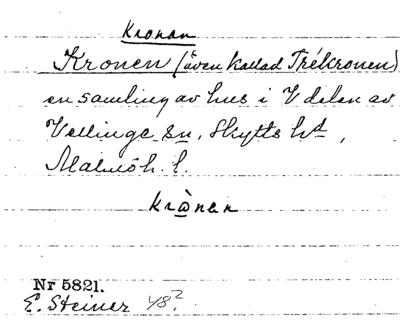 Kronan
Kronen (även kallad Trékronen)
en samling av hus i V delen av
Vellinge sn, Skytts hd,
Malmöh. l.
krònen
Nr 5821.
E. Steiner 48?